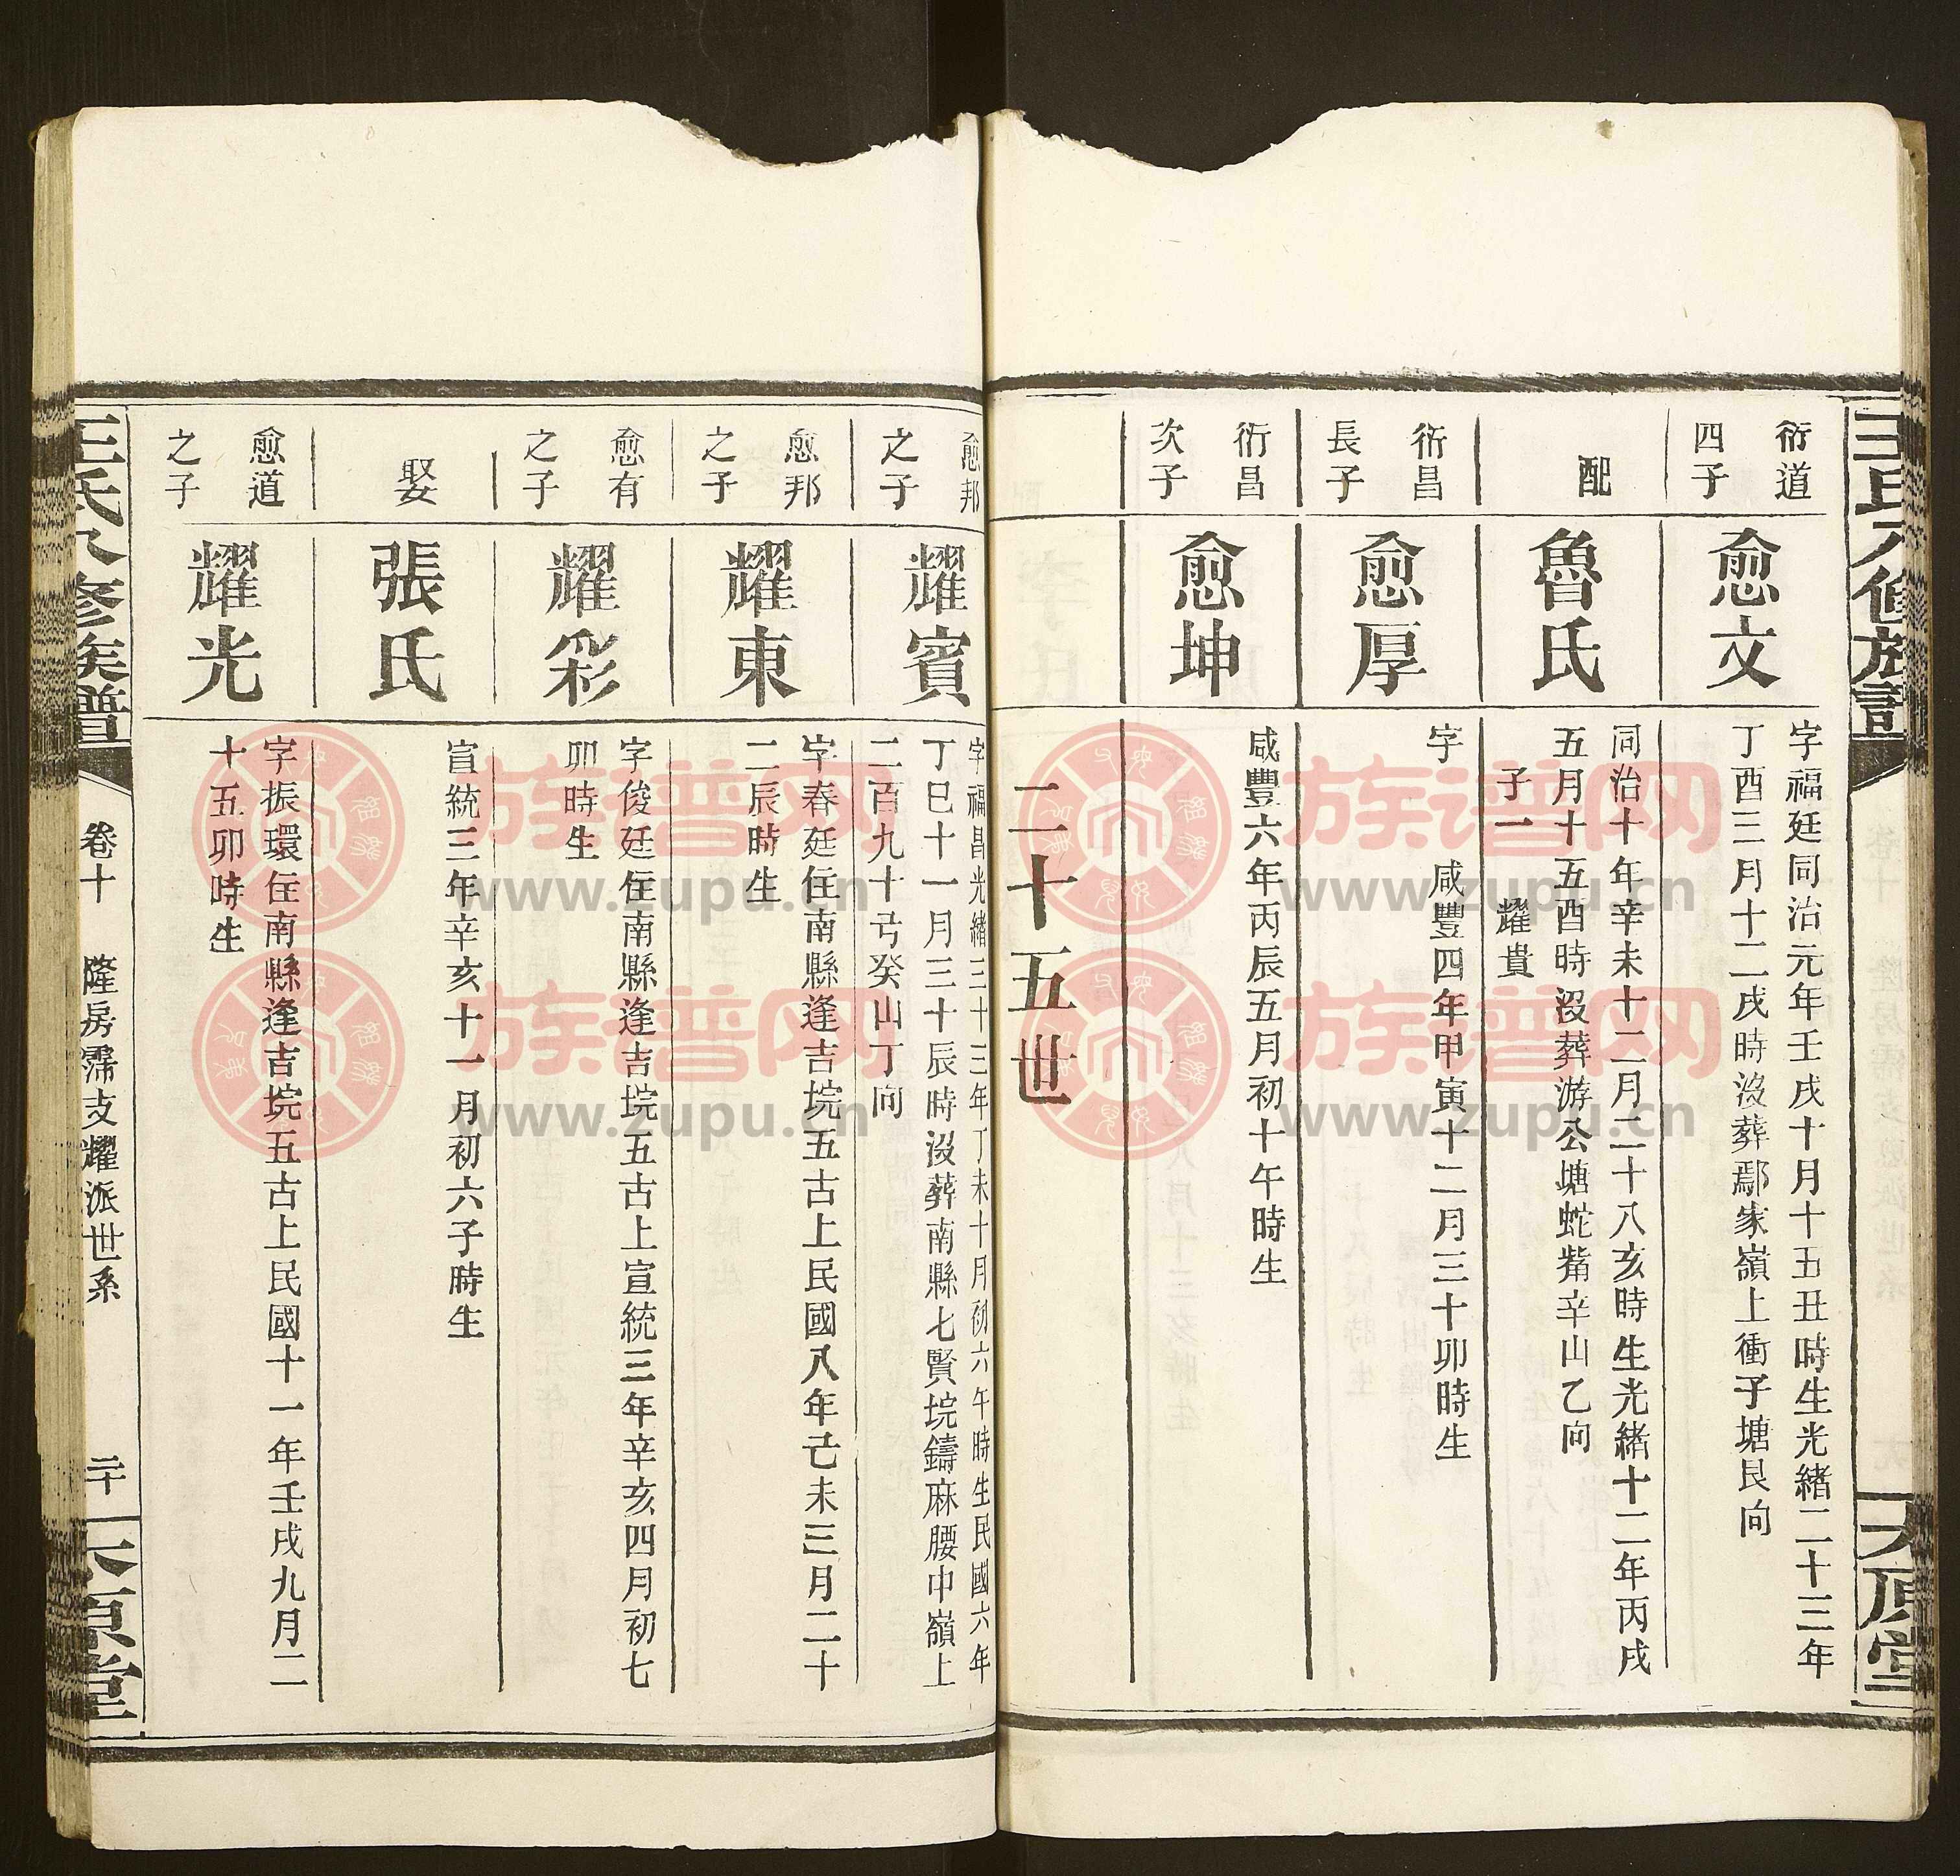 王氏八修族譜
太原堂
衍道
四子
愈文
字福廷同治元年壬戌十月十五丑時生光緒二十三年
丁酉三月十二戌時沒葬鄢家嶺上衝子塘艮向
配
魯氏
同治十年辛未十二月二十八亥時生光緒十二年丙戌
五月十五酉時沒葬游公塘蛇觜辛山乙向
子一 耀貴
衍昌
長子
愈厚
字 咸豐四年甲寅十二月三十卯時生
衍昌
次子
愈坤
咸豐六年丙辰五月初十午時生
二十五世
愈邦
之子
耀賓
字福昌光緒三十三年丁未十月初六午時生民國六年
丁巳十一月三十辰時沒葬南縣七賢垸鑄麻腰中嶺上
二百九十号癸山丁向
愈邦
之子
耀東
字春廷住南縣逢吉垸五古上民國八年己未三月二十
二辰時生
愈有
之子
耀彩
字俊廷住南縣逢吉垸五古上宣統三年辛亥四月初七
卯時生
娶
張氏
宣統三年辛亥十一月初六子時生
愈道
之子
耀光
字振環住南縣逢吉垸五古上民國十一年壬戌九月二
十五卯時生
王氏八修族譜
卷十 隆房霈支耀派世系
二十
太原堂
族谱网
www.zupu.cn
族谱网
www.zupu.cn
族谱网
www.zupu.cn
族谱网
www.zupu.cn